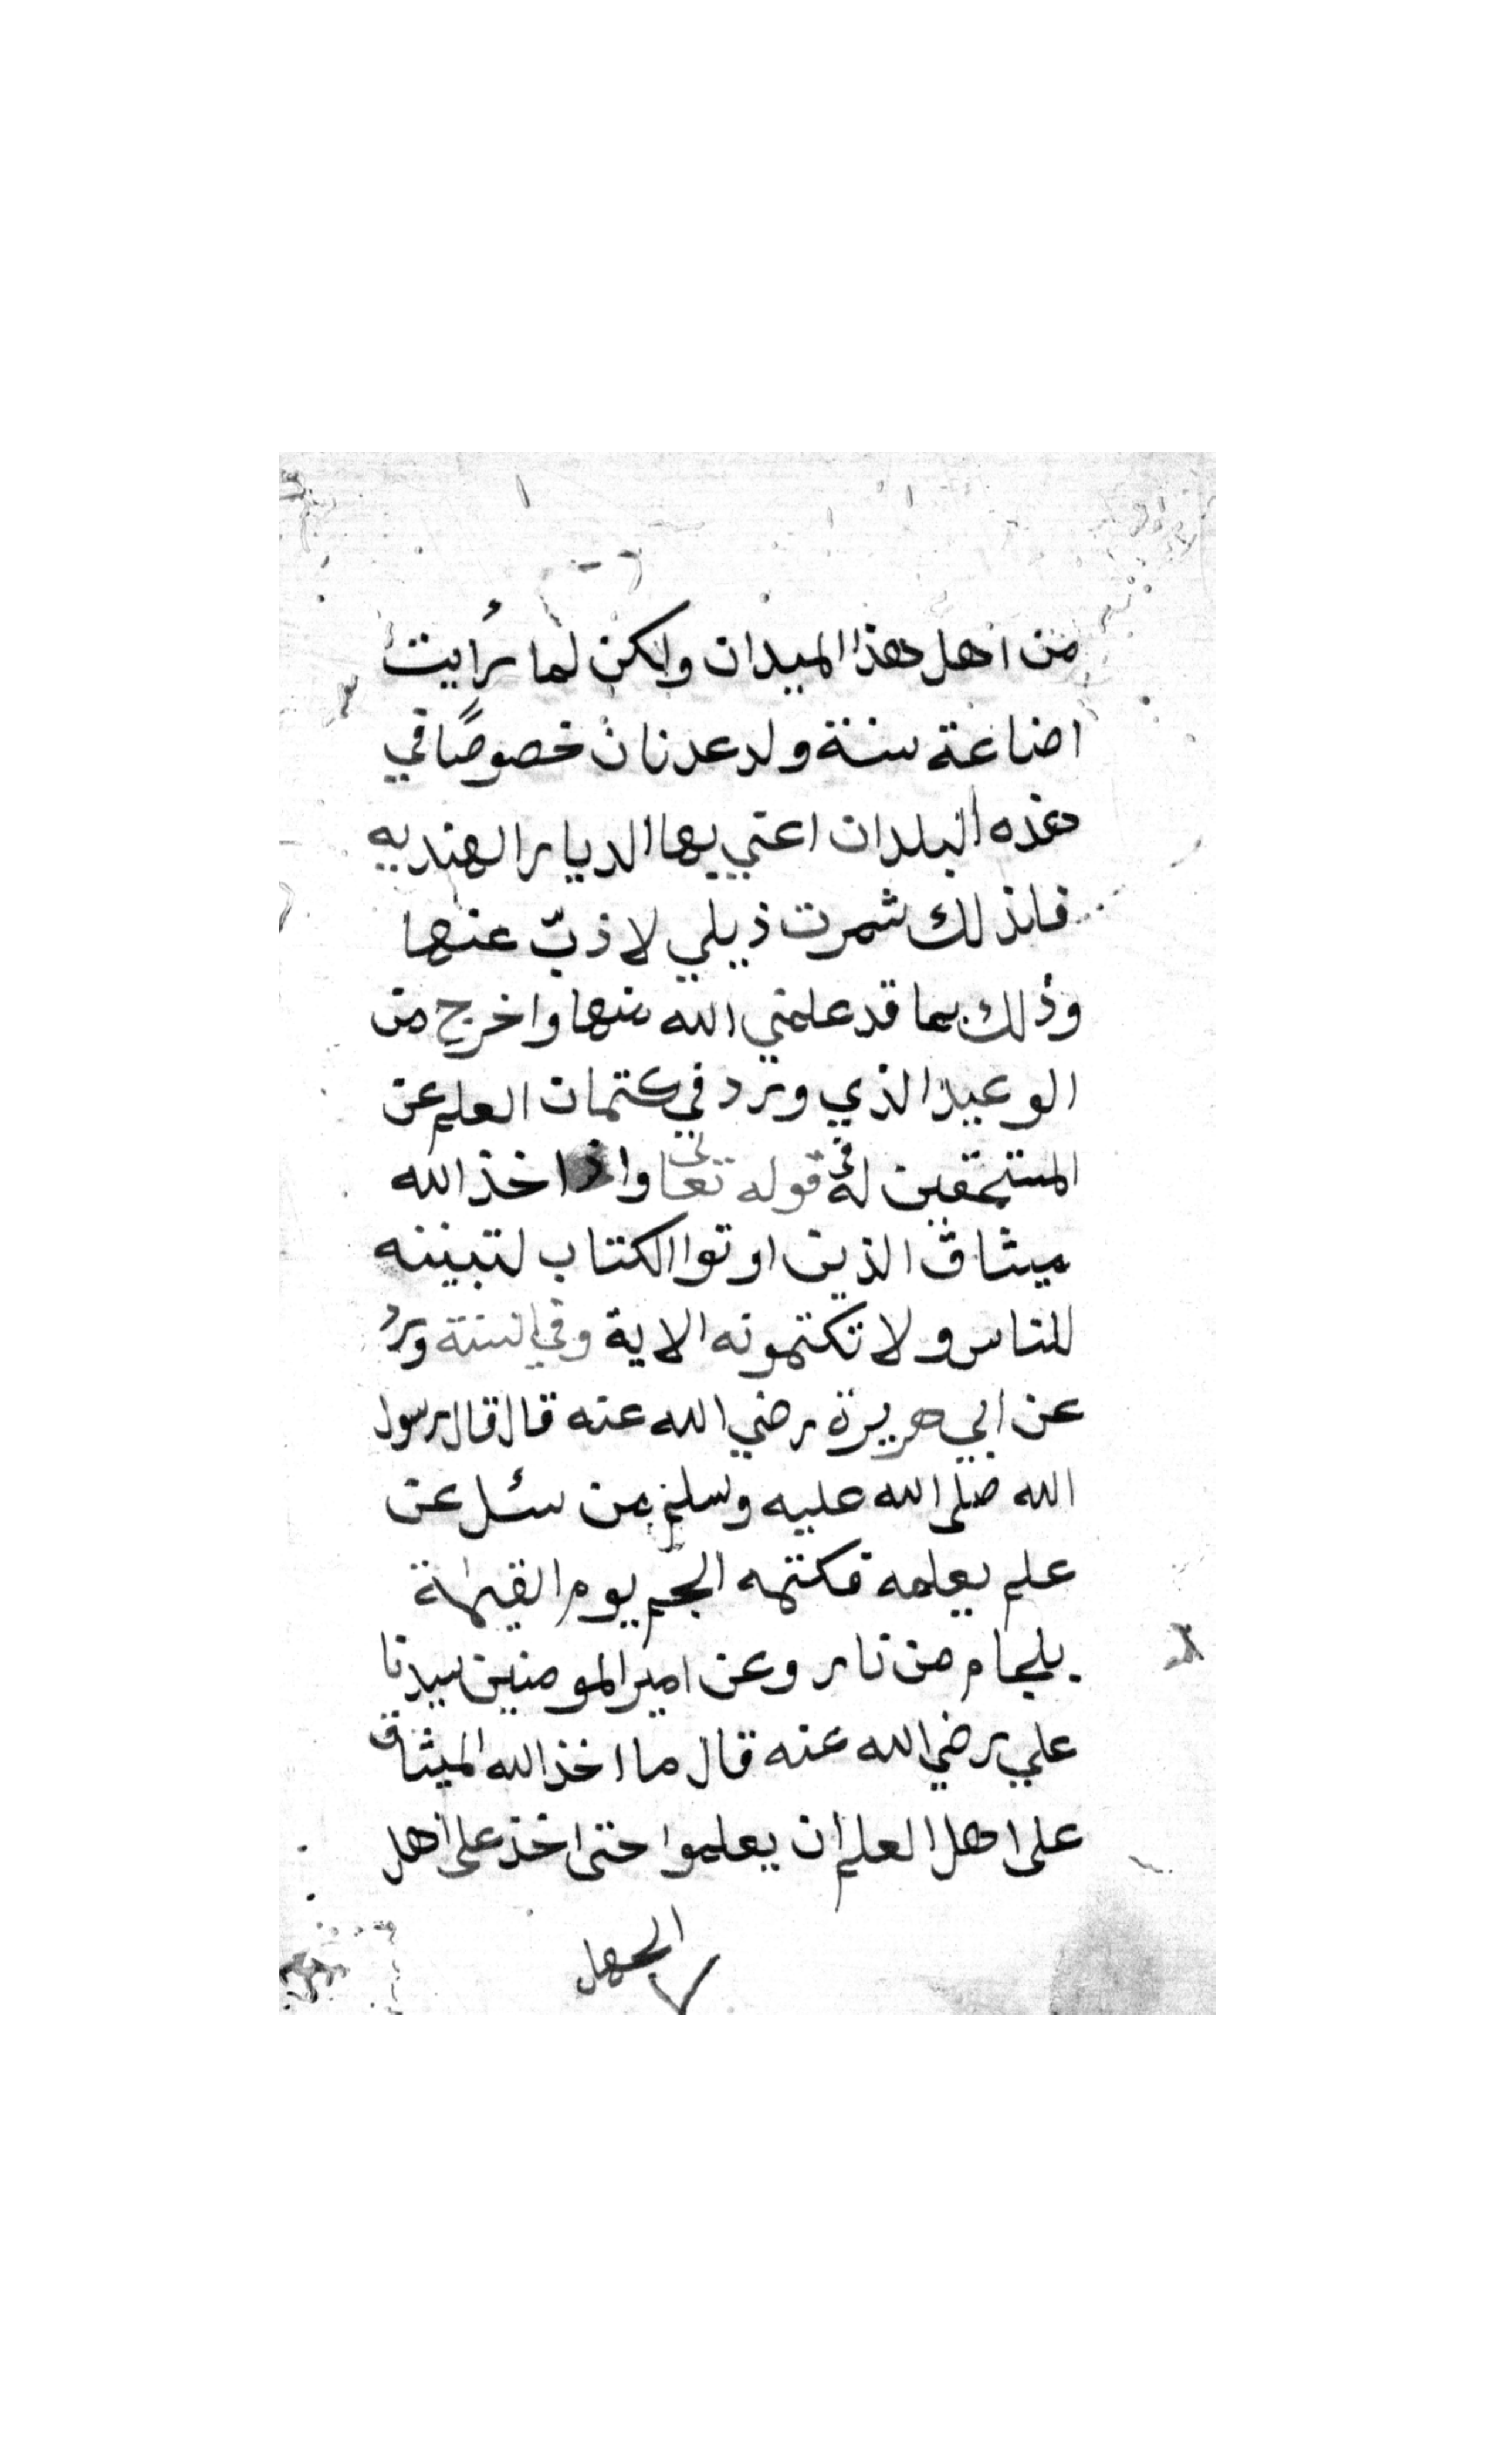 من اهل هذا الميدان ولكن لما رأيت
اضاعة سنة ولد عدنان خصوصًا في
هذه البلدان اعني بها الديار الهنديه
فلذلك شمرت ذيلي لاذبّ عنها
وذلك بما قد علمني الله منها واخرج من
الوعيد الذي ورد في كتمان العلم عن
المستحقين له في قوله تعالى واذ اخذ الله
ميثاق الذين اوتوا الكتاب لتبيننه
للناس ولا تكتمونه الاية وفي السنة ورد
عن ابي هريرة رضي الله عنه قال قال رسول
الله صلى الله عليه وسلم من سئل عن
علم يعلمه فكتمه الجم يوم القيمة
بلجام من نار وعن امير المومنين سيدنا
علي رضي الله عنه قال ما اخذ الله الميثاق
على اهل العلم ان يعلموا حتى اخذ على اهل
الجهل